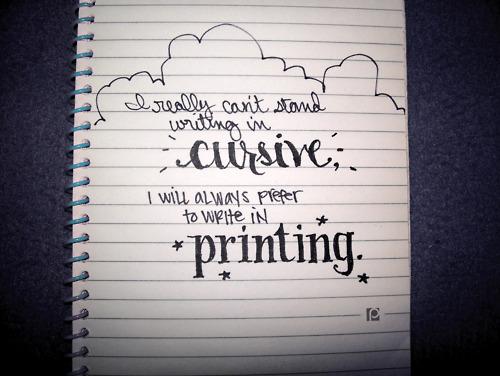 I really can't stand
writing in
cursive,
I WILL ALWAYS PREFER
to WRITE IN
printing.